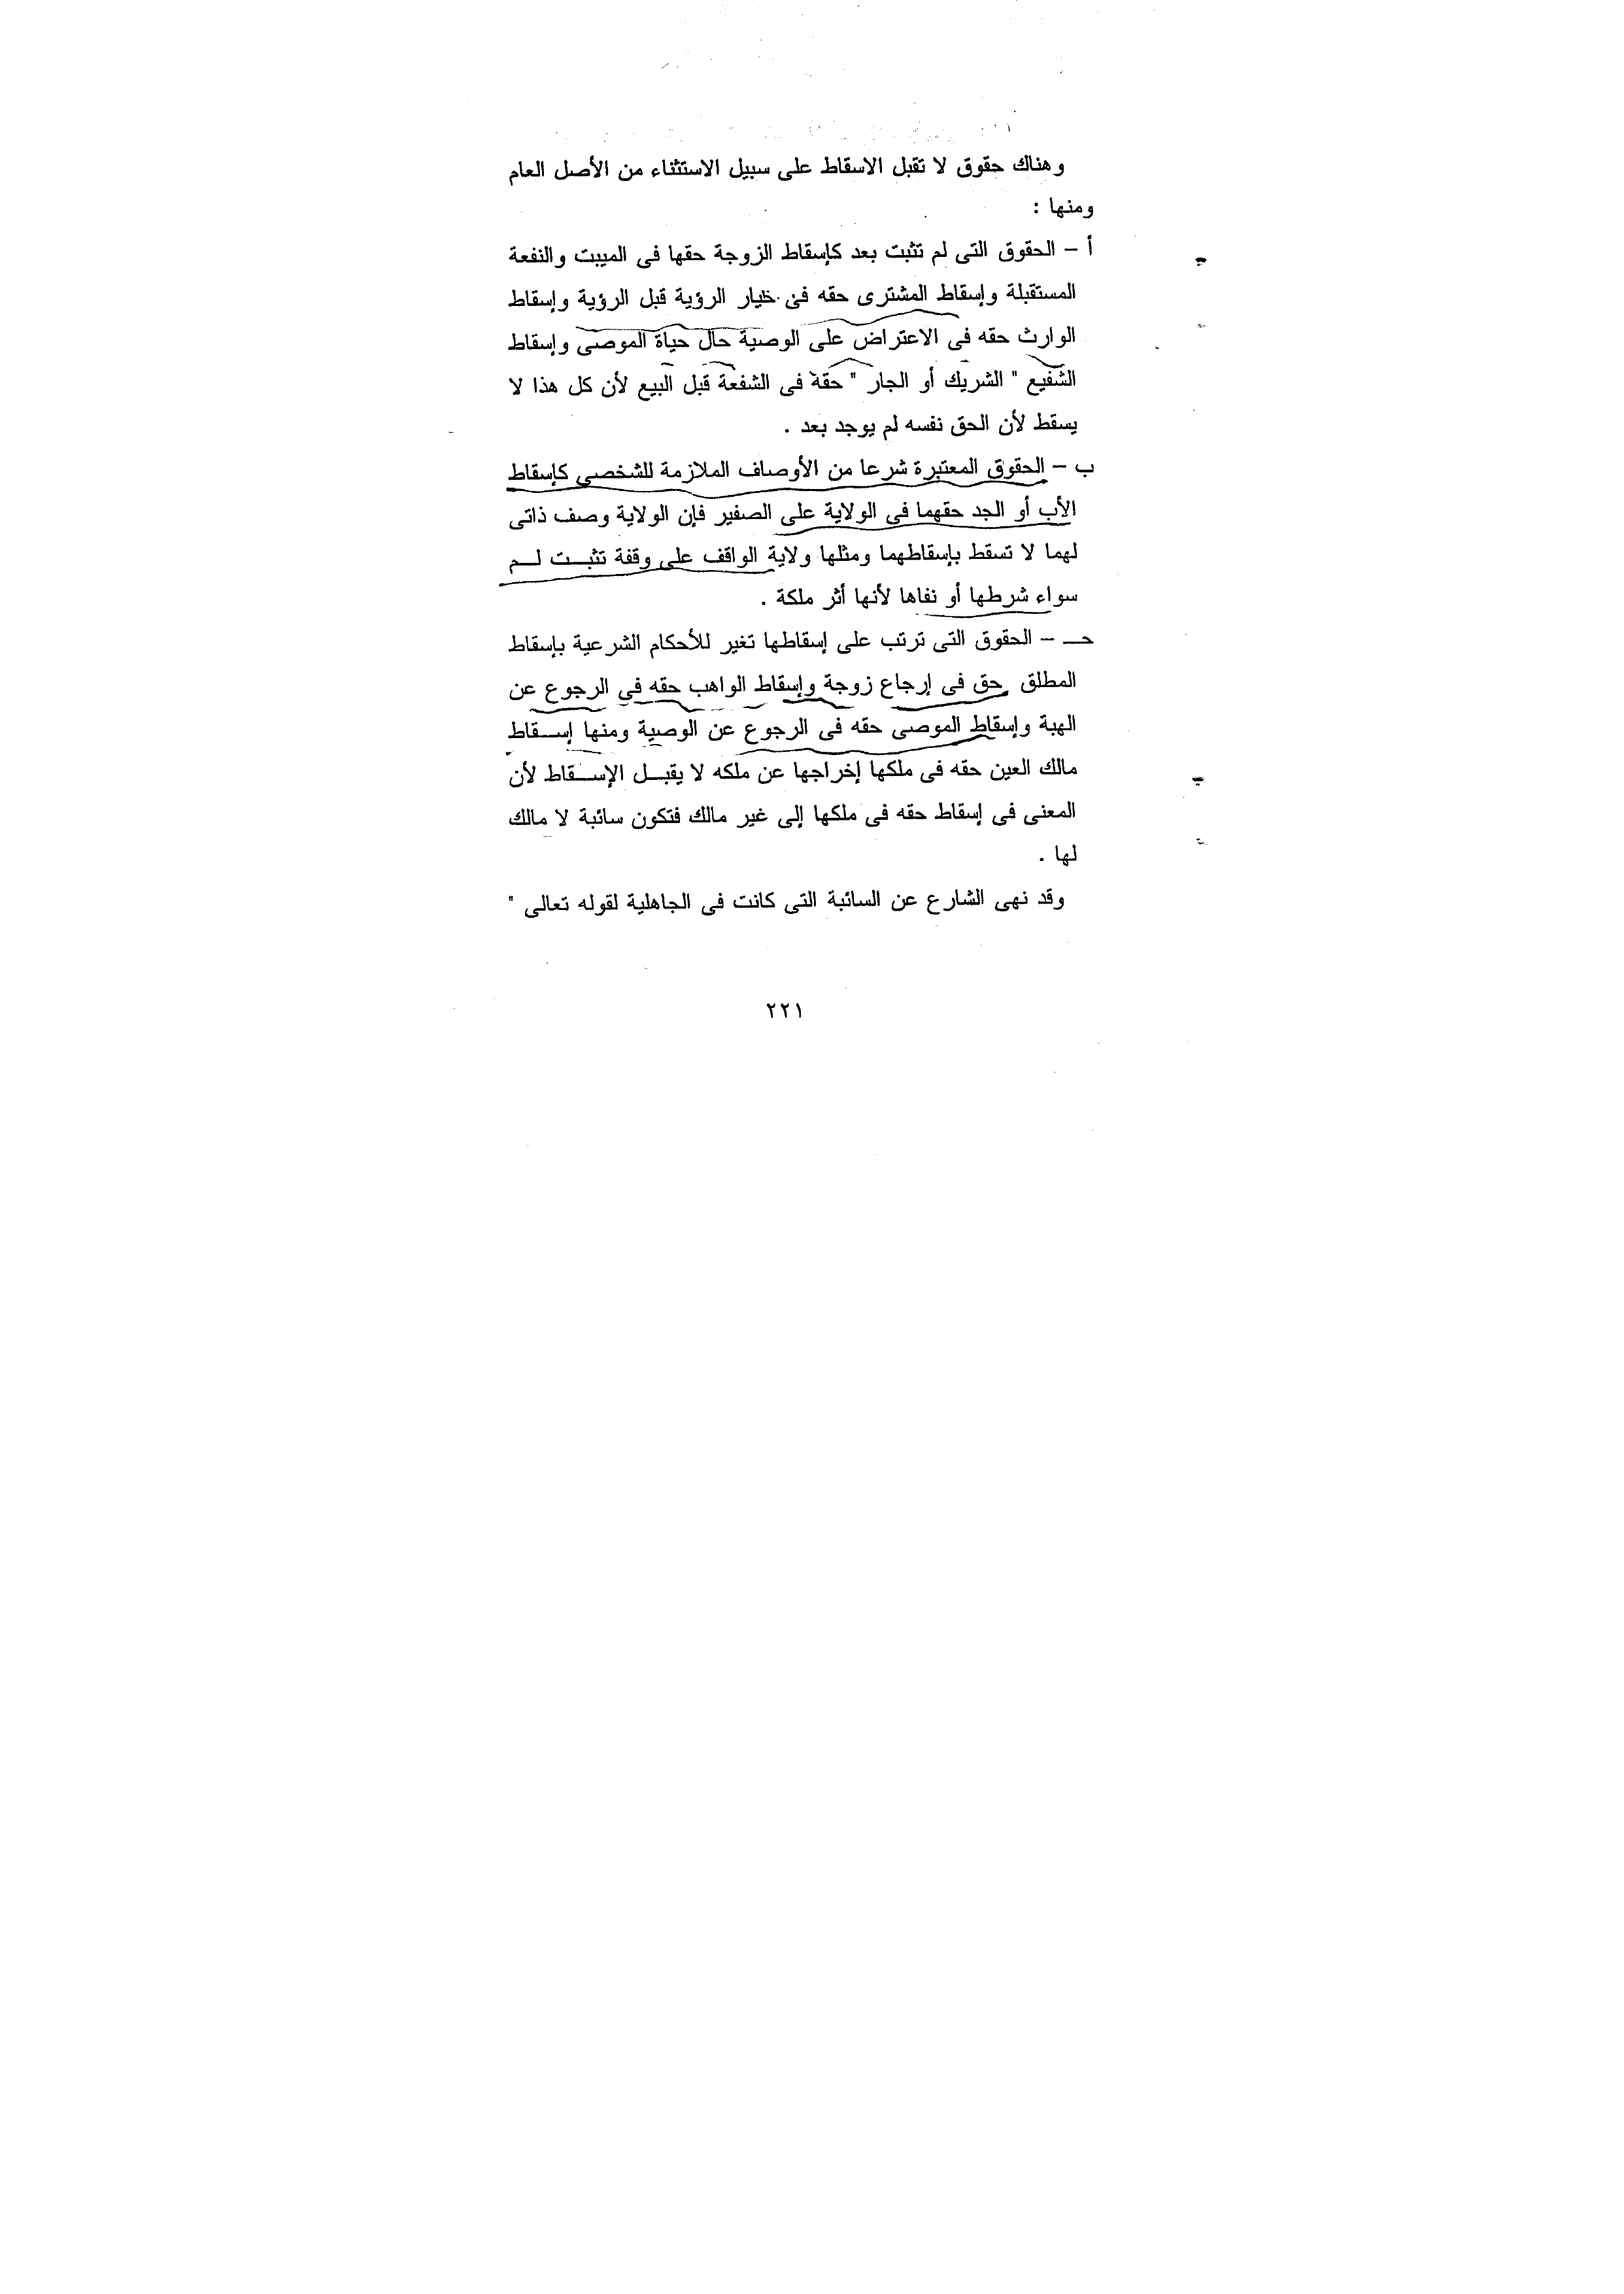 وهناك حقوق لا تقبل الاسقاط على سبيل الاستثناء من الأصل العام
ومنها :
أ – الحقوق التى لم تثبت بعد كإسقاط الزوجة حقها فى المبيت والنفعة
المستقبلة وإسقاط المشترى حقه فى خيار الرؤية قبل الرؤية وإسقاط
الوارث حقه فى الاعتراض على الوصية حال حياة الموصى وإسقاط
الشفيع " الشريك أو الجار " حقة فى الشفعة قبل البيع لأن كل هذا لا
يسقط لأن الحق نفسه لم يوجد بعد .
ب – الحقوق المعتبرة شرعا من الأوصاف الملازمة للشخصى كإسقاط
الأب أو الجد حقهما فى الولاية على الصفير فإن الولاية وصف ذاتى
لهما لا تسقط بإسقاطهما ومثلها ولاية الواقف على وقفة تثبـــت لـــم
سواء شرطها أو نفاها لأنها أثر ملكة .
حـ – الحقوق التى ترتب على إسقاطها تغير للأحكام الشرعية بإسقاط
المطلق حق فى إرجاع زوجة وإسقاط الواهب حقه فى الرجوع عن
الهبة وإسقاط الموصى حقه فى الرجوع عن الوصية ومنها إســقاط
مالك العين حقه فى ملكها إخراجها عن ملكه لا يقبــل الإســقاط لأن
المعنى فى إسقاط حقه فى ملكها إلى غير مالك فتكون سائبة لا مالك
لها .
وقد نهى الشارع عن السائبة التى كانت فى الجاهلية لقوله تعالى "
٢٢١